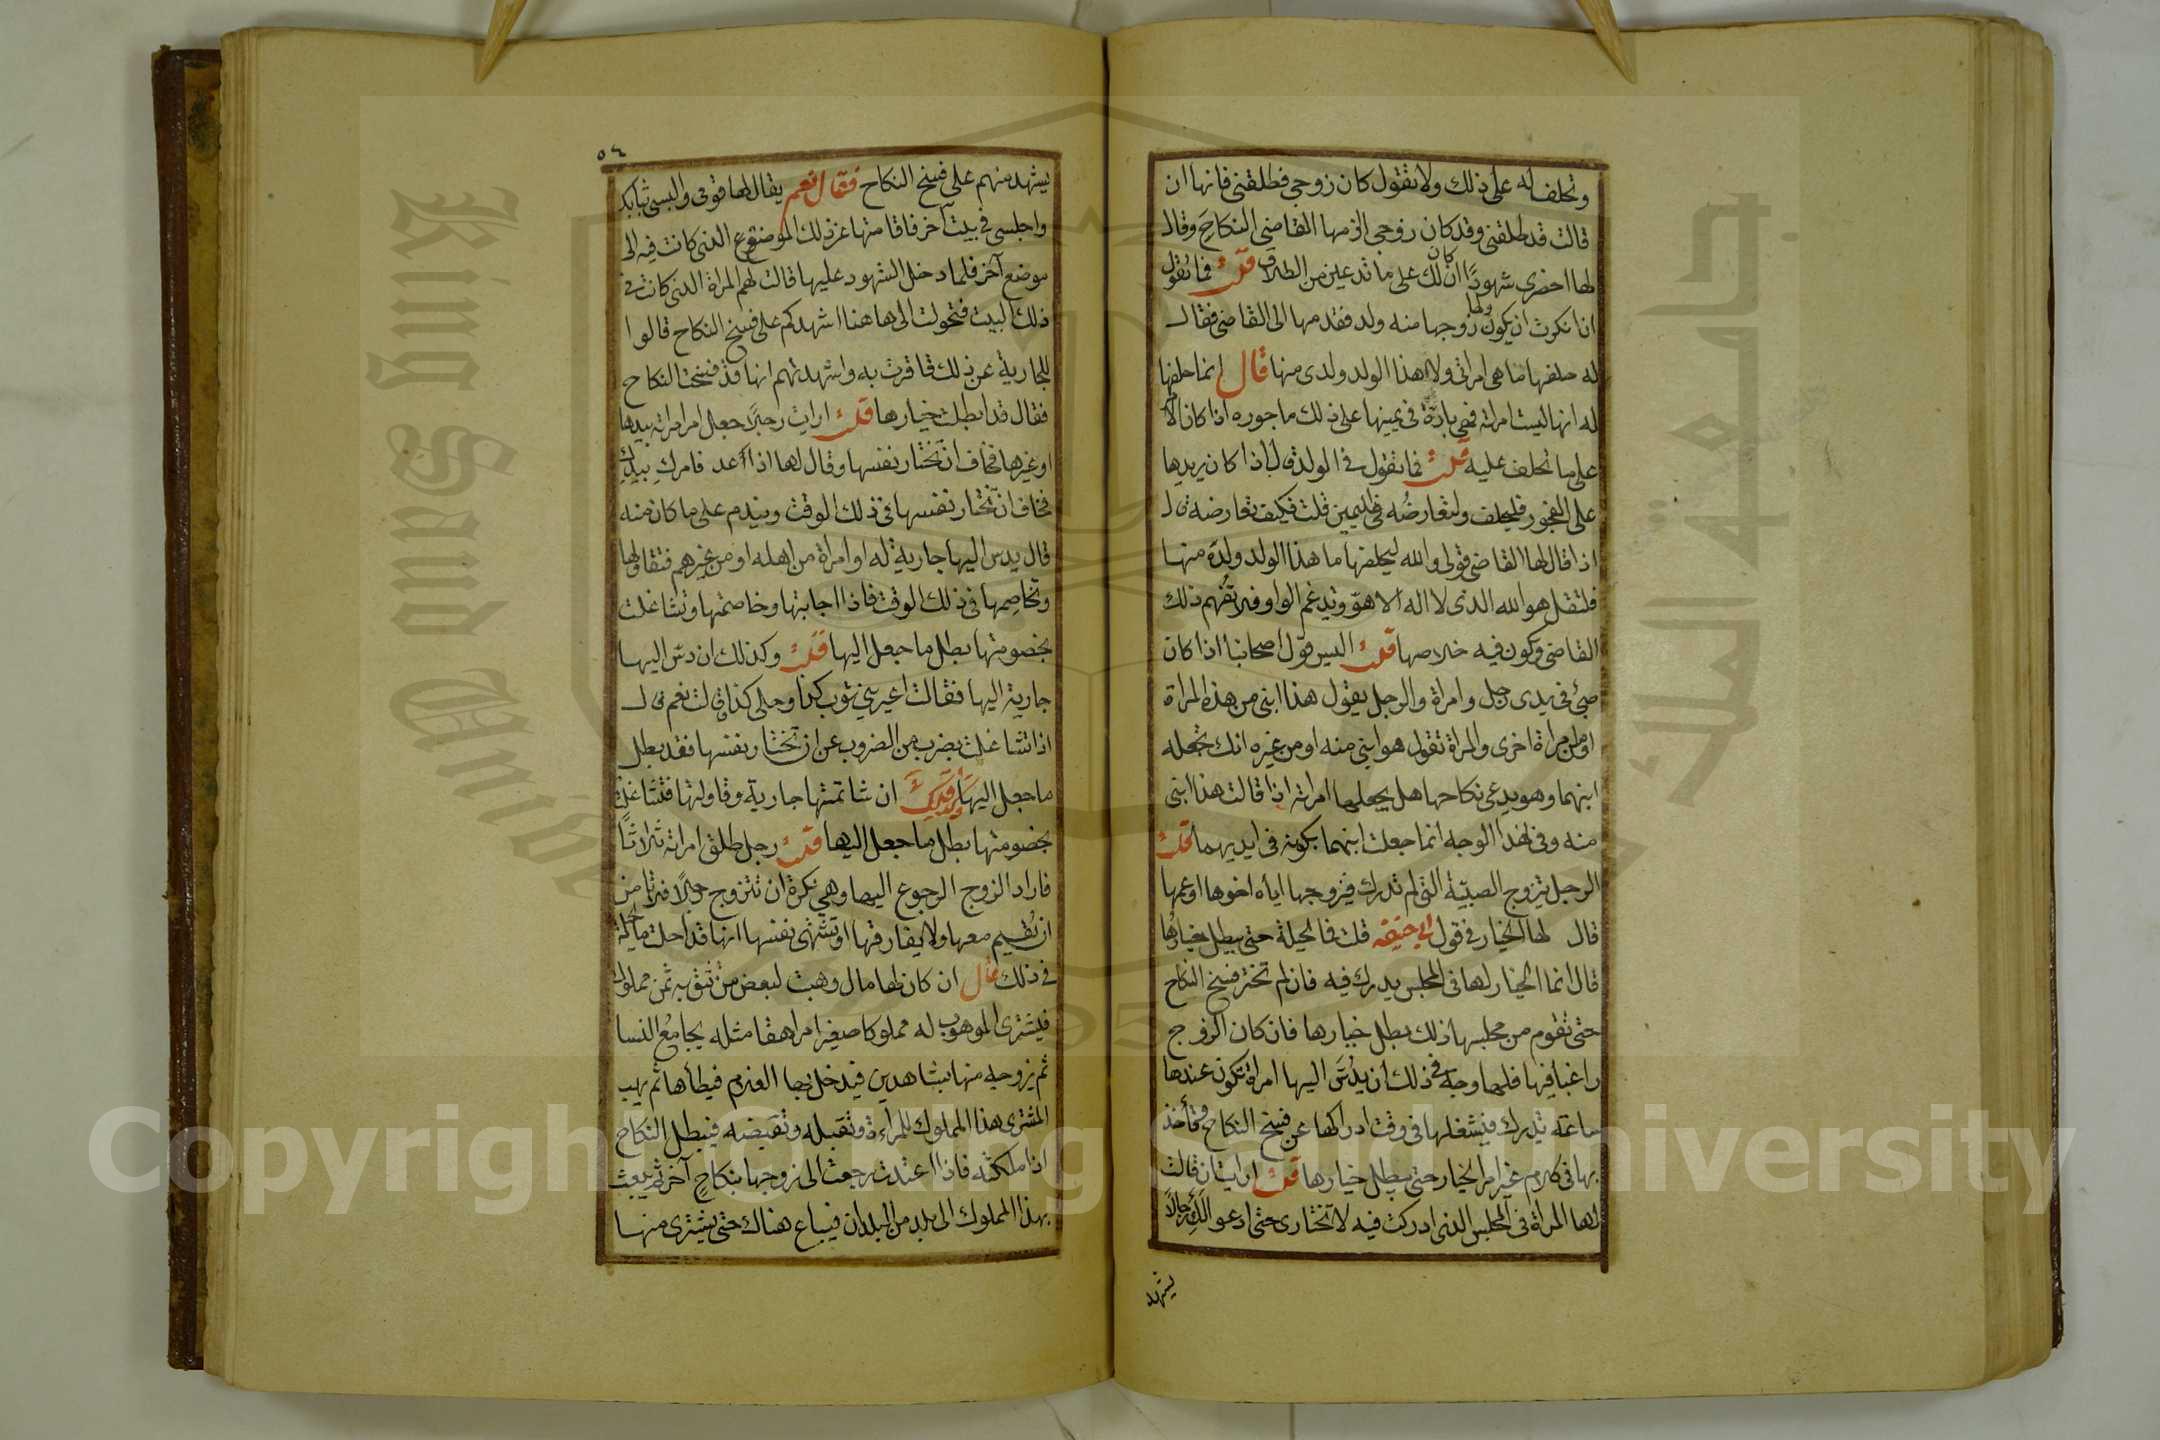 وتحلف له على ذلك ولا تقول كان زوجي فطلقني فانها ان
قالت قد طلقني وقد كان زوجي الزمها القاضي النكاح وقال
لها احضري شهودا ان كان لك على ما تدعين من الطلاق قلت فما تقول
ان انكرت ان يكون زوجها ولها منه ولد فقدمها الى القاضي فقال
له حلفها ما هي امراتي ولا هذا الولد ولدي منها قال انما حلفها
له انها ليست امراته فهي بارة في يمينها على ذلك ماجورة اذا كان الا
على ما تحلف عليه قلت فما تقول في الولد قال اذا كان يريدها
على الفجور فليحلف ولتعارضه في اليمين قلت فكيف تعارضه قال
اذا قال لها القاضي قولي والله ليحلفها ما هذا الولد ولده منها
فلتقل هو الله الذي لا اله الا هو وتدغم الواو فلا تفهم ذلك
القاضي ويكون فيه خلاصها قلت اليس قول اصحابنا اذا كان
صبي في يدي رجل وامراة والرجل يقول هذا ابني من هذه المراة
او من امراة اخرى والمراة تقول هو ابني منه او من غيره انك تجعله
ابنهما وهو يدعي نكاحها هل يجعلها امراته اذا قالت هذا ابني
منه وفي هذا الوجه انما جعلت ابنهما بكونه في ايديهما قلت
الرجل يتزوج الصبية التي لم تدرك فيزوجها اياه اخوها او عمها
قال لها الخيار في قول ابي حنيفة قلت فالحيلة حتى يبطل خيارها
قال انما الخيار لها في المجلس يدرك فيه فان لم تختر فسخ النكاح
حتى تقوم من مجلسها ذلك بطل خيارها فان كان الزوج
راغبا فيها فلها وجه في ذلك ان يدس اليها امراة تكون عندها
ساعة تدرك فيشغلها في وقت ادراكها عن فسخ النكاح وتأخذ
بها في كلام غير امر الخيار حتى يبطل خيارها قلت ارايت ان قالت
لها المراة في المجلس الذي ادركت فيه لا تختاري حتى ادعو لك رجالا
يشهد
٥٤
يشهد منهم على فسخ النكاح فقال نعم يقال لها قومي والبسي ثيابك
واجلسي في بيت آخر فاقامتها عن ذلك الموضع الذي كانت فيه الى
موضع آخر فلما دخل الشهود عليها قالت لهم المراة الذي كانت في
ذلك البيت فتحولت الى هاهنا اشهدكم على فسخ النكاح قالوا
للجارية عن ذلك فاقرت به واشهدتهم انها قد فسخت النكاح
فقال قد ابطلت خيارها قلت ارايت رجلا جعل امر امراته بيدها
او غيرها فخاف ان تختار نفسها وقال لها اذا غد فامرك بيدك
فخاف ان تختار نفسها في ذلك الوقت ويندم على ما كان منه
قال يدس اليها جارية له او امراة من اهله او من غيرهم فتقاولها
وتخاصمها في ذلك الوقت فاذا اجابتها وخاصمتها وتشاغلت
بخصومتها بطل ما جعل اليها قلت وكذلك ان دس اليها
جارية اليها فقالت اعيريني ثوب كذا وحلي كذا قالت نعم قال
اذا تشاغلت بضرب من الضروب عن ان تختار نفسها فقد بطل
ما جعل اليها ان شاتمتها جارية وقاولتها فتشاغلت
بخصومتها بطل ما جعل اليها قلت رجل طلق امراته ثلاثا
فاراد الزوج الرجوع اليها وهي تكره ان تتزوج رجلا فلا تامن
ان يقيم معها ولا يفارقها او تشتهي نفسها انها قد احلت ما الحيلة
في ذلك قال ان كان لها مال وهبت لبعض من تثق به ثمن مملوك
فيشتري الموهوب له مملوكا صغيرا مراهقا مثله يجامع النسا
ثم يزوجه منها بشاهدين فيدخل بها الغلام فيطأها ثم يهب
المشتري هذا المملوك للمراءة وتقبله وتقبضه فيبطل النكاح
اذا ملكته فاذا اعتدت رجعت الى زوجها بنكاح آخر ثم يبعث
بهذا المملوك الى بلد من البلدان فيباع هناك حتى يشتري منها
Copyright © King Saud University